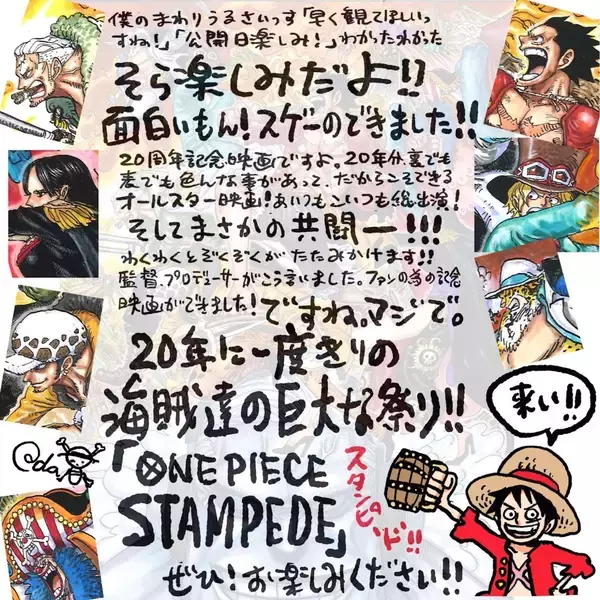 僕のまわりうるさいっす「早く観てほしいっ
すね!」「公開日楽しみ!」わかったわかった
そら楽しみだよ!!
面白いもん!スゲーのできました!!
20周年記念映画ですよ。20年分、裏でも
表でも色んな事があって、だからこそできる
オールスター映画!あいつもこいつも総出演!
そしてまさかの共闘ー!!!
わくわくとぞくぞくがたたみかけます!!
監督、プロデューサーがこう言いました。ファンの為の記念
映画ができました!ですね。マジで。
20年に一度きりの
海賊達の巨大な祭り!!
「ONE PIECE
STAMPEDE」
スタンピード!!
ぜひ!お楽しみください!!
来い!!